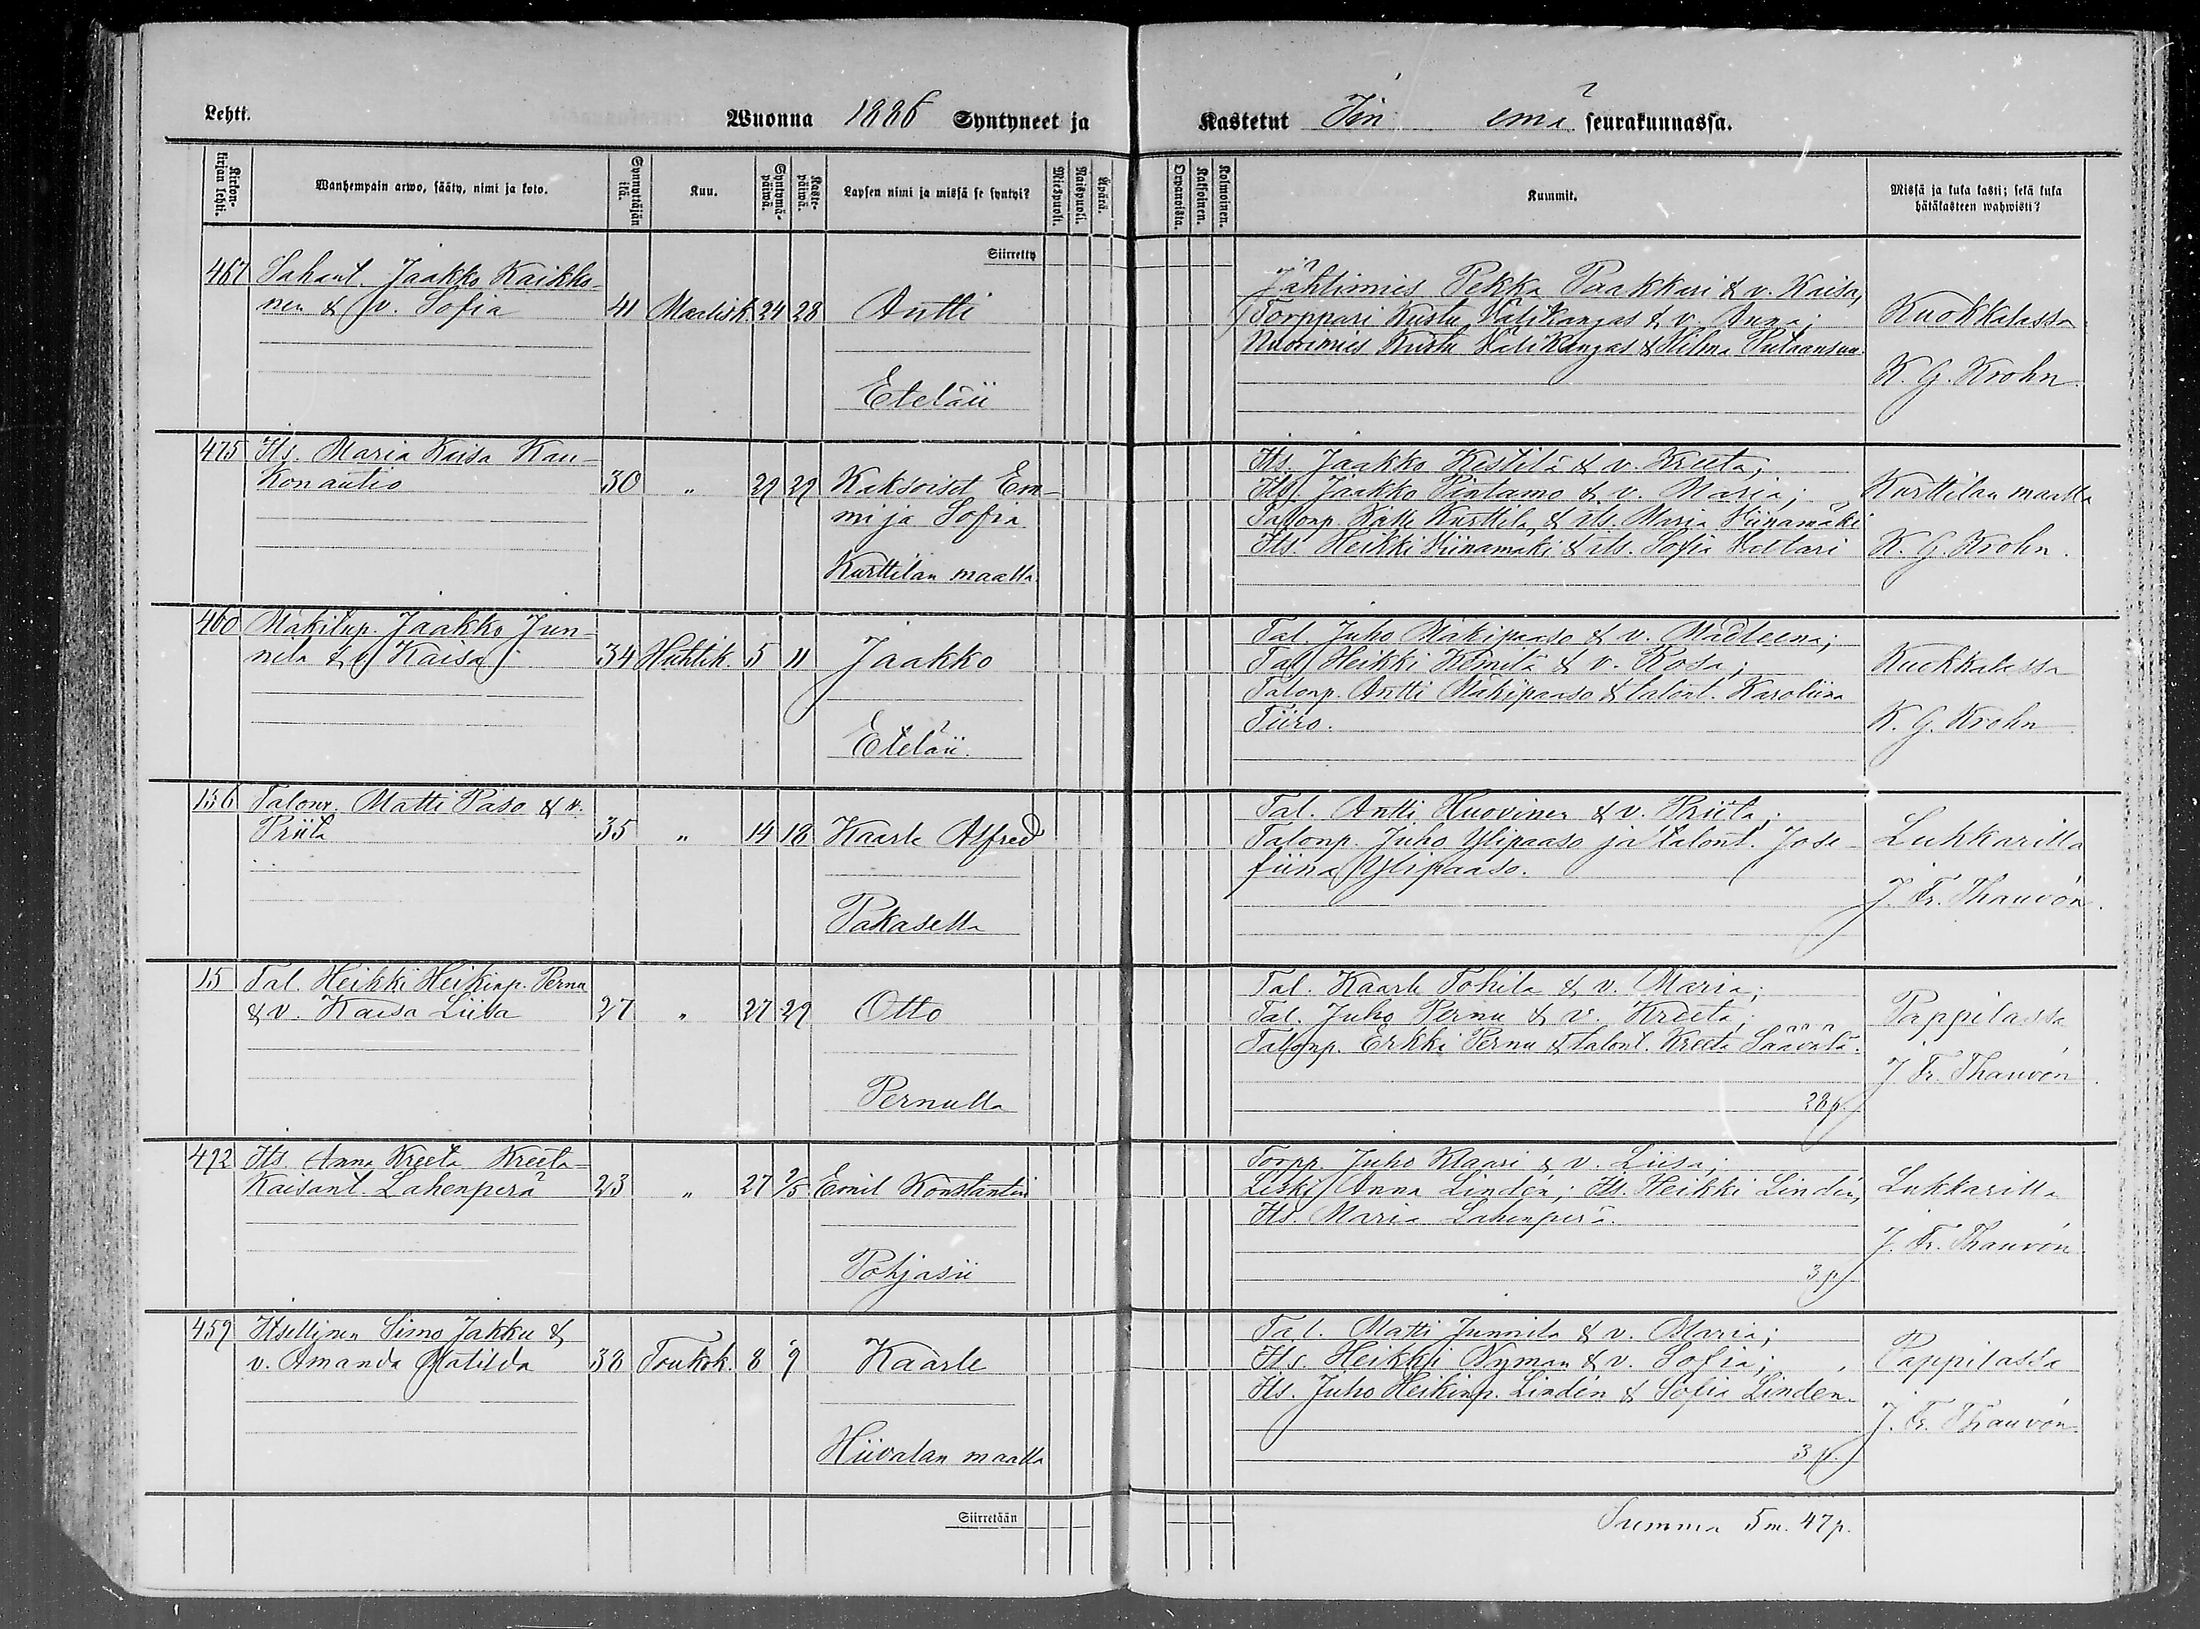 Lehti. Wuonna 1886 Syntyneet ja
Kastetut Iin emä seurakunnassa.
Kirkon-kirjan lehti. Wanhempain arwo, sääty, nimi ja koto. Synnyttäjän ikä. Kuu. Syntymä-päiwä. Kaste-päiwä. Lapsen nimi ja missä se syntyi? Miespuoli. Naispuoli. Äpärä.
Orpanoista. Kaksoinen. Kolmoinen. Kummit. Missä ja kuka kasti; sekä kuka hätäkasteen wahwisti?
Siirretty
467 Sahant. Jaakko Kaikko-
nen & v. Sofia 41 Maalisk. 24 28 Antti
Eteläii
Jähtimies Pekka Paakkari & v. Kaisa,
Torppari Kustu Välikangas & v. Anna;
Nuorimies Kustu Välikangas & Hilma
Kuokkalassa
K. G. Krohn.
475 Its. Maria Kaisa Kau-
konautio 30 " 29 29 Kaksoiset Em-
mi ja Sofia
Kurttilan maalla
Its. Jaakko Kestilä & v. Kreeta;
Its. Jaakko Pintamo & v. Maria;
Talonp. Kalle Kurttila & its. Maria Viinamäki
Its. Heikki Viinamäki & its. Sofia Valtari
Kurttilan maalla
K. G. Krohn.
460 Mäkitup. Jaakko Jun-
nila & v. Kaisa 34 Huhtik. 5 11 Jaakko
Eteläii.
Tal. Juho Mäkipaaso & v. Madleena;
Tal. Heikki Kemilä & v. Rosa;
Talonp. Antti Mäkipaaso & talont. Karoliina
Tiiro.
Kuokkalassa
K. G. Krohn
156 Talonp. Matti Paso & v.
Priita 35 " 14 18 Kaarle Alfred
Pakasella
Tal. Antti Huovinen & v. Priita;
Talonp. Juho Ylipaaso ja talont. Jose-
fiina Ylipaaso.
Lukkarilla
J. Fr. Thauvón.
15 Tal. Heikki Heikinp. Pernu
& v. Kaisa Liisa 27 " 27 29 Otto
Pernulla
Tal. Kaarle Tohila & v. Maria;
Tal. Juho Pernu & v. Kreeta;
Talonp. Erkki Pernu & talont. Kreeta Säävälä.
28 p.
Pappilassa
J. Fr. Thauvón.
492 Its. Anna Kreeta Kreeta-
Kaisant. Lahenperä 23 " 27 2/5 Emil Konstantin
Pohjasii
Torpp. Juho Klaasi & v. Liisa;
Leski Anna Lindén; Its. Heikki Lindén,
Its. Maria Lahenperä.
3 p.
Lukkarilla
J. Fr. Thauvón
459 Itsellinen Simo Jakku &
v. Amanda Matilda 38 Toukok. 8 9 Kaarle
Hiivalan maalla
Tal. Matti Junnila & v. Maria;
Its. Heikki Nyman & v. Sofia;
Its. Juho Heikinp. Lindén & Sofia Linden.
3 p.
Pappilassa
J. Fr. Thauvón.
Siirretään
Summa 5 m. 47 p.